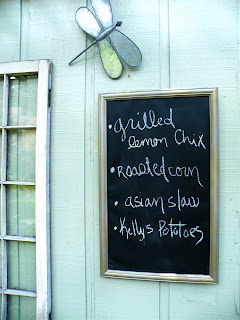 • grilled
lemon Chix
• Roasted corn
• asian slaw
• Kelly's Potatoes